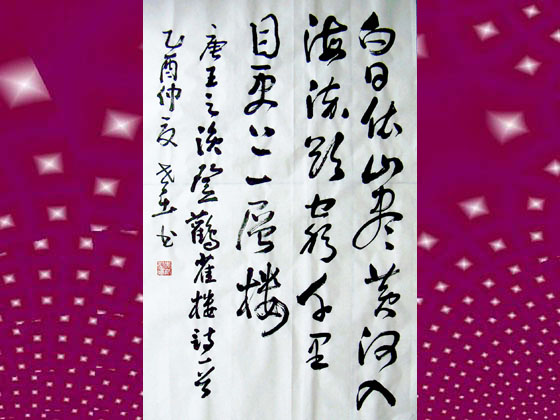 白日依山尽黄河入
海流欲穷千里
目更上一层楼
唐王之涣登鹳雀楼诗一首
乙酉仲夏 书